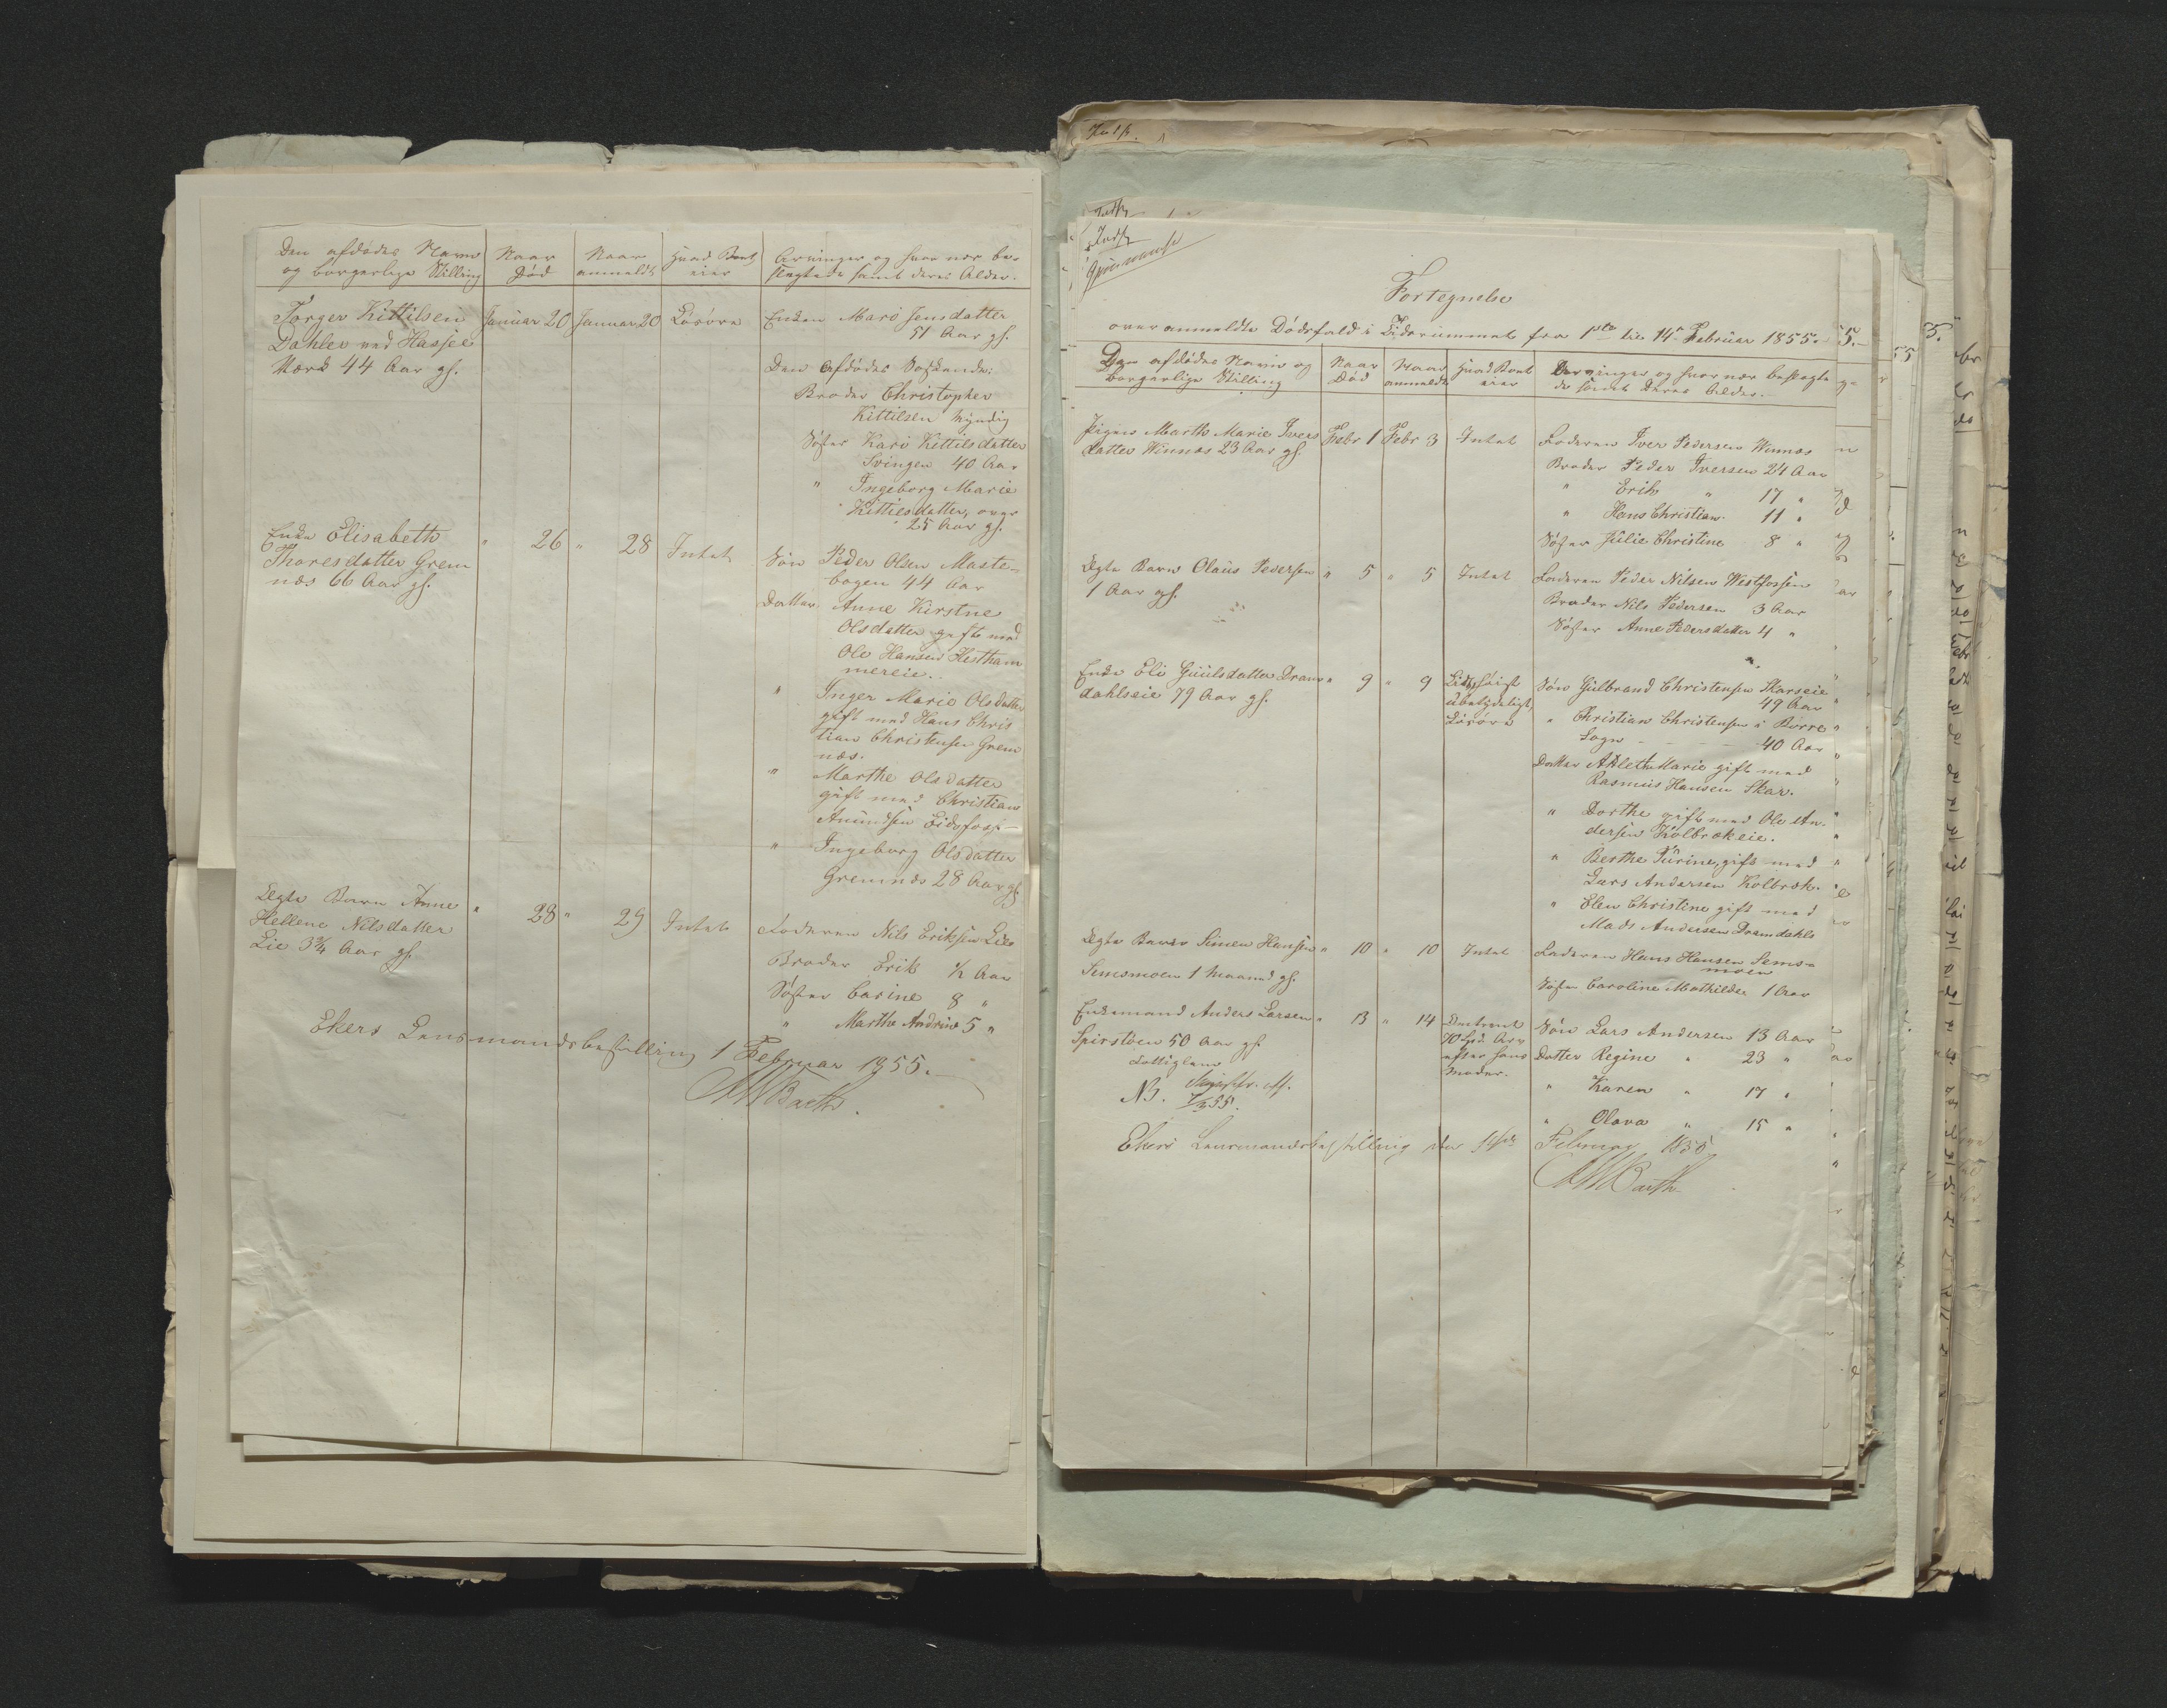 Den afdødes Navn og borgerlige Stilling
Naar Død
Naar anmeldt
Hvad Boet eier
Arvinger og hvor nær beslægtede samt deres Alder.
Torger Kittilsen Januar 20 Januar 20 Løsøre Enken Mari Jensdatter
51 Aar gl.
Dahler ved Hassel
Værk 44 Aar gl.
Den Afdødes Søskende:
Broder Christopher
Kittilsen Myndig
Søster Kari Kittilsdatter
Svingen 40 Aar
" Ingeborg Marie
Kittilsdatter, over
25 Aar gl.
Enke Elisabeth " 26 " 28 Intet
Thoresdatter Grem
næs 66 Aar gl.
Søn Peder Olsen Maste-
bogen 44 Aar
Datter Anne Kirstne
Olsdatter gift med
Ole Hansen Hestham
mereie.
" Inger Marie Olsdatter
gift med Hans Chris
tian Christensen Grem
næs.
" Marthe Olsdatter
gift med Christian
Amundsen Eidsfoss
" Ingeborg Olsdatter
Gremnæs 28 Aar gl.
Ægte Barn Anne " 28 " 29 Intet Faderen Nils Eriksen Lie
Hellene Nilsdatter
Lie 3¾ Aar gl.
Broder Erik ½ Aar
Søster Carine 8 "
" Marthe Andrine 5 "
Ekers Lensmandsbestilling 1 Februar 1855.
MBarth.
Fortegnelse
over anmeldte Dødsfald i Tidsrummet fra 1ste til 14de Februar 1855.
Den afdødes Navn og borgerlige Stilling
Naar Død
Naar anmeldt
Hvad Boet eier
Arvinger og hvor nær beslægtede samt deres Alder.
Pigen Marth Marie Ivers Febr 1 Febr 3 Intet Faderen Iver Pedersen Winnæs
datter Winnæs 23 Aar gl.
Broder Peder Iversen 24 Aar
" Erik " 17 "
" Hans Christian 11 "
Søster Julie Christine 8 "
Ægte Barn Olaus Pedersen " 5 " 5 Intet Faderen Peder Nilsen Westfossen
1 Aar gl.
Broder Nils Pedersen 3 Aar
Søster Anne Pedersdatter 4 "
Enke Eli Guulsdatter Dram " 9 " 9
dahlseie 79 Aar gl.
høist
ubetydeligt
Løsøre
Søn Gulbrand Christensen Skarseie
49 Aar
" Christian Christensen i Borre
Sogn 40 Aar
Datter Ahlet Marie gift med
Rasmus Hansen Skar.
" Dorthe gift med Ole An-
dersen Kolbrekeie.
" Berthe Turine, gift med
Lars Andersen Kolbræk.
" Elen Christine gift med
Mads Andersen Dramdahls
Ægte Barn Simen Hansen " 10 " 10 Intet Faderen Hans Hansen Sems-
moen
Semsmoen 1 Maaned gl.
Søster Caroline Mathilde 1 Aar
Enkemand Anders Larsen " 13 " 14
Spirstøen 50 Aar gl.
Fattiglem
efter hans
Moder.
Søn Lars Andersen 13 Aar
Datter Regine " 23 "
" Karen " 17 "
" Olava " 15 "
Ekers Lensmandsbestilling den 14de Februar 1855
MBarth